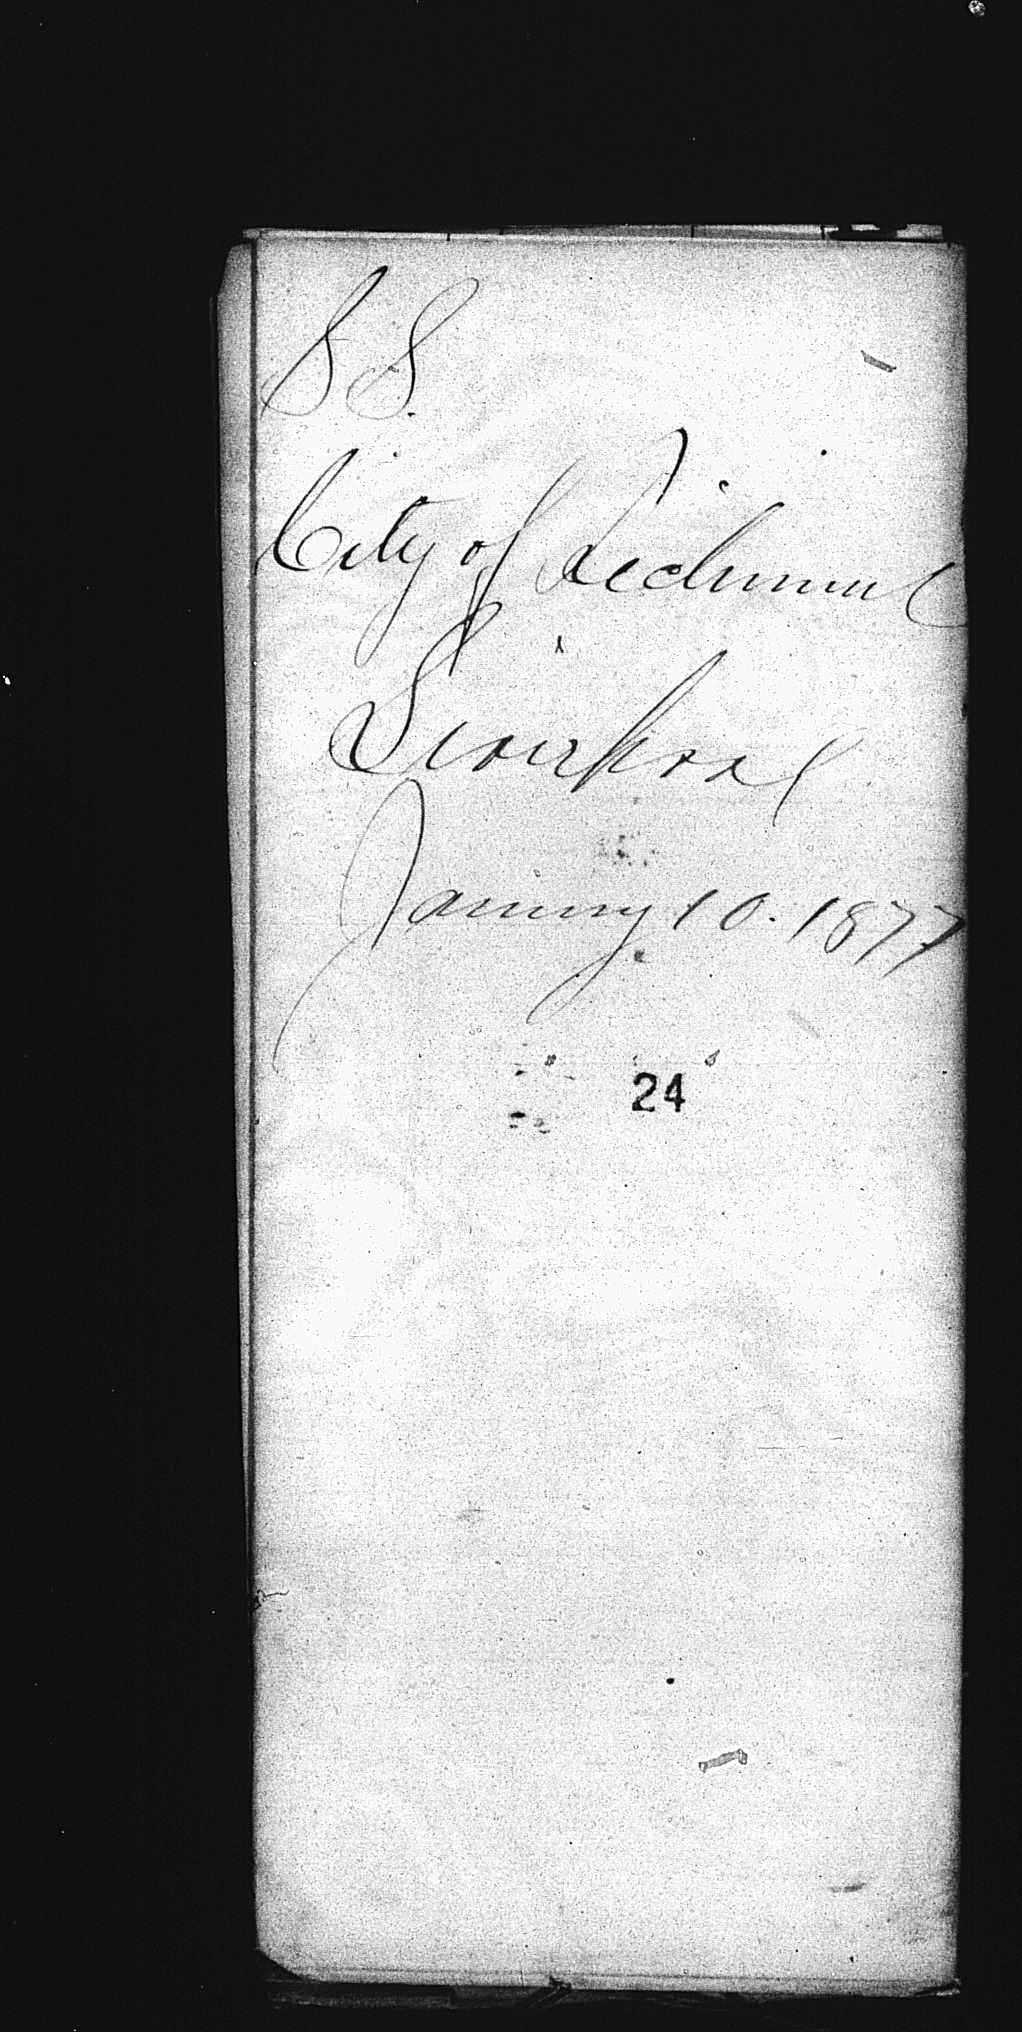 S S.
City of Richmond
Liverpool
January 10. 1877
24